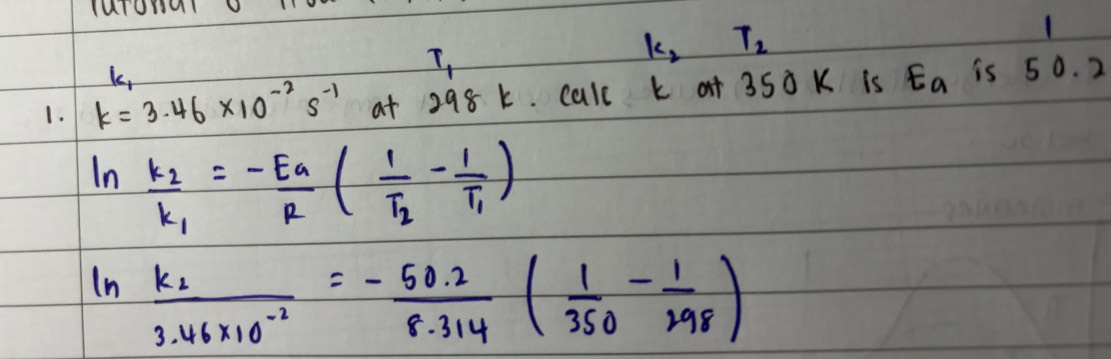 Tutorial 6
k₁ T₁ k₂ T₂ 1
1. k = 3.46 × 10⁻² s⁻¹ at 298 k. calc k at 350 K is Ea is 50.2
ln k₂/k₁ = - Ea/R ( 1/T₂ - 1/T₁ )
ln k₂/3.46×10⁻² = - 50.2/8.314 ( 1/350 - 1/298 )